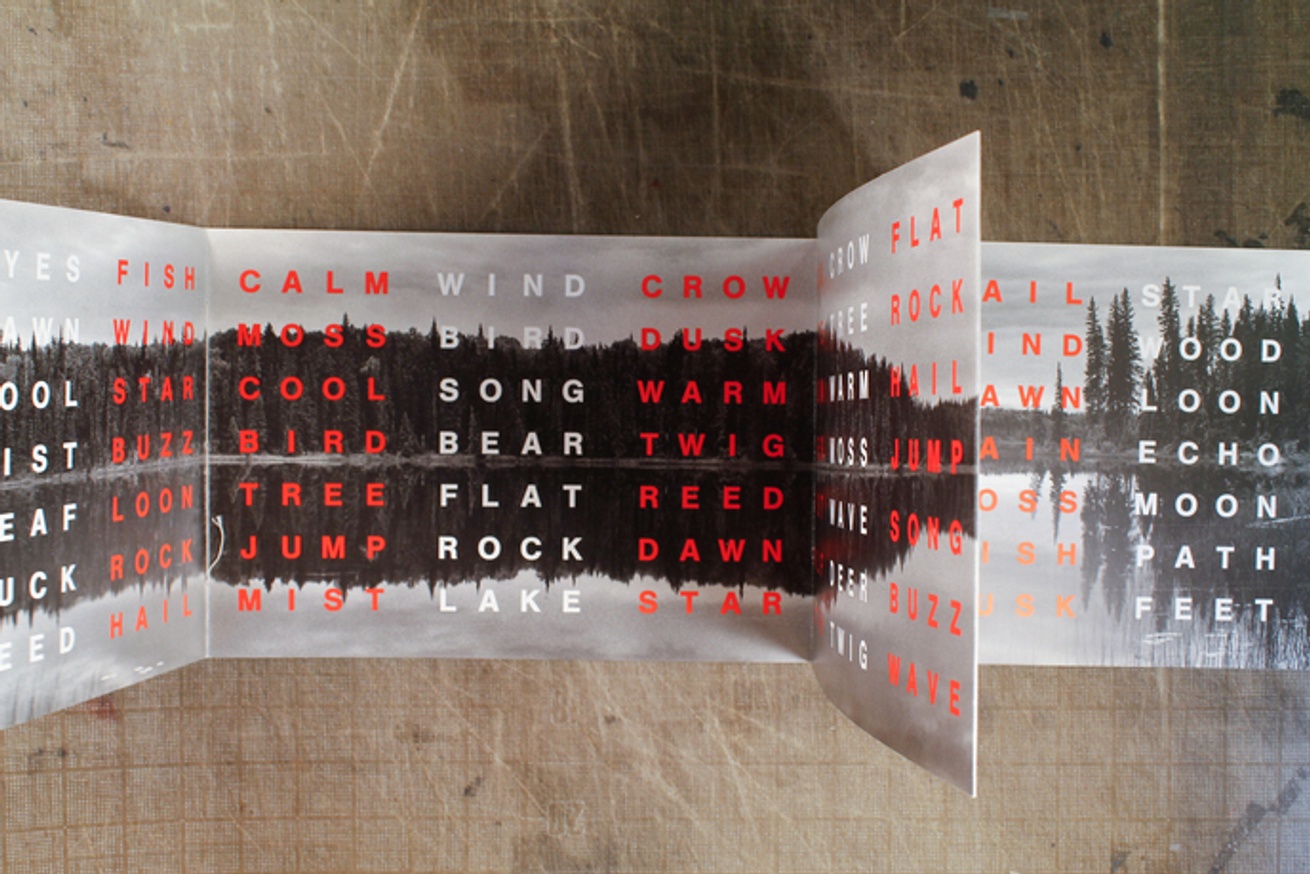 YES FISH
AWN WIND
OOL STAR
IST BUZZ
EAF LOON
UCK ROCK
EED HAIL
CALM WIND CROW
MOSS BIRD DUSK
COOL SONG WARM
BIRD BEAR TWIG
TREE FLAT REED
JUMP ROCK DAWN
MIST LAKE STAR
CROW FLAT
TREE ROCK
WARM HAIL
MOSS JUMP
WAVE SONG
DEER BUZZ
TWIG WAVE
AIL STAR
IND WOOD
AWN LOON
AIN ECHO
OSS MOON
ISH PATH
USK FEET